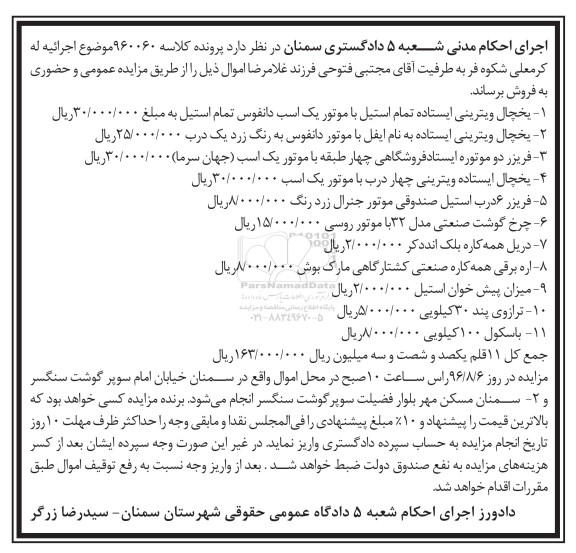 اجرای احکام مدنی شـــعبه ۵ دادگستری سمنان در نظر دارد پرونده کلاسه ۹۶۰۰۶۰موضوع اجرائیه له
کرمعلی شکوه فر به طرفیت آقای مجتبی فتوحی فرزند غلامرضا اموال ذیل را از طریق مزایده عمومی و حضوری
به فروش برساند.
۱-یخچال ویترینی ایستاده تمام استیل با موتور یک اسب دانفوس تمام استیل به مبلغ ۳۰/۰۰۰/۰۰۰ریال
۲-یخچال ویترینی ایستاده به نام ایفل با موتور دانفوس به رنگ زرد یک درب ۲۵/۰۰۰/۰۰۰ریال
۳-فریزر دو موتوره ایستادفروشگاهی چهار طبقه با موتور یک اسب (جهان سرما)۳۰/۰۰۰/۰۰۰ریال
۴-یخچال ایستاده ویترینی چهار درب با موتور یک اسب ۳۰/۰۰۰/۰۰۰ریال
۵-فریزر ۶درب استیل صندوقی موتور جنرال زرد رنگ ۸/۰۰۰/۰۰۰ریال
۶-چرخ گوشت صنعتی مدل ۳۲با موتور روسی ۱۵/۰۰۰/۰۰۰ریال
۷-دریل همه کاره بلک انددکر ۲/۰۰۰/۰۰۰ریال
۸-اره برقی همه کاره صنعتی کشتارگاهی مارک بوش ۸/۰۰۰/۰۰۰ریال
۹-میزان پیش خوان استیل ۲/۰۰۰/۰۰۰ریال
۱۰-ترازوی پند ۳۰کیلویی ۵/۰۰۰/۰۰۰ریال
۱۱- باسکول ۱۰۰کیلویی ۸/۰۰۰/۰۰۰ریال
جمع کل ۱۱قلم یکصد و شصت و سه میلیون ریال ۱۶۳/۰۰۰/۰۰۰ریال
مزایده در روز ۹۶/۸/۶راس ســاعت ۱۰صبح در محل اموال واقع در سـمنان خیابان امام سوپر گوشت سنگسر
و ۲- ســمنان مسکن مهر بلوار فضیلت سوپر گوشت سنگسر انجام می‌شود. برنده مزایده کسی خواهد بود که
بالاترین قیمت را پیشنهاد و ۱۰٪ مبلغ پیشنهادی را فی‌المجلس نقدا و مابقی وجه را حداکثر ظرف مهلت ۱۰روز
تاریخ انجام مزایده به حساب سپرده دادگستری واریز نماید. در غیر این صورت وجه سپرده ایشان بعد از کسر
هزینه‌های مزایده به نفع صندوق دولت ضبط خواهد شــد . بعد از واریز وجه نسبت به رفع توقیف اموال طبق
مقررات اقدام خواهد شد.
دادورز اجرای احکام شعبه ۵ دادگاه عمومی حقوقی شهرستان سمنان- سیدرضا زرگر
ParsNamadData
پایگاه اطلاع رسانی مناقصه و مزایده
۰۲۱-۸۸۳۴۹۶۷۰-۵